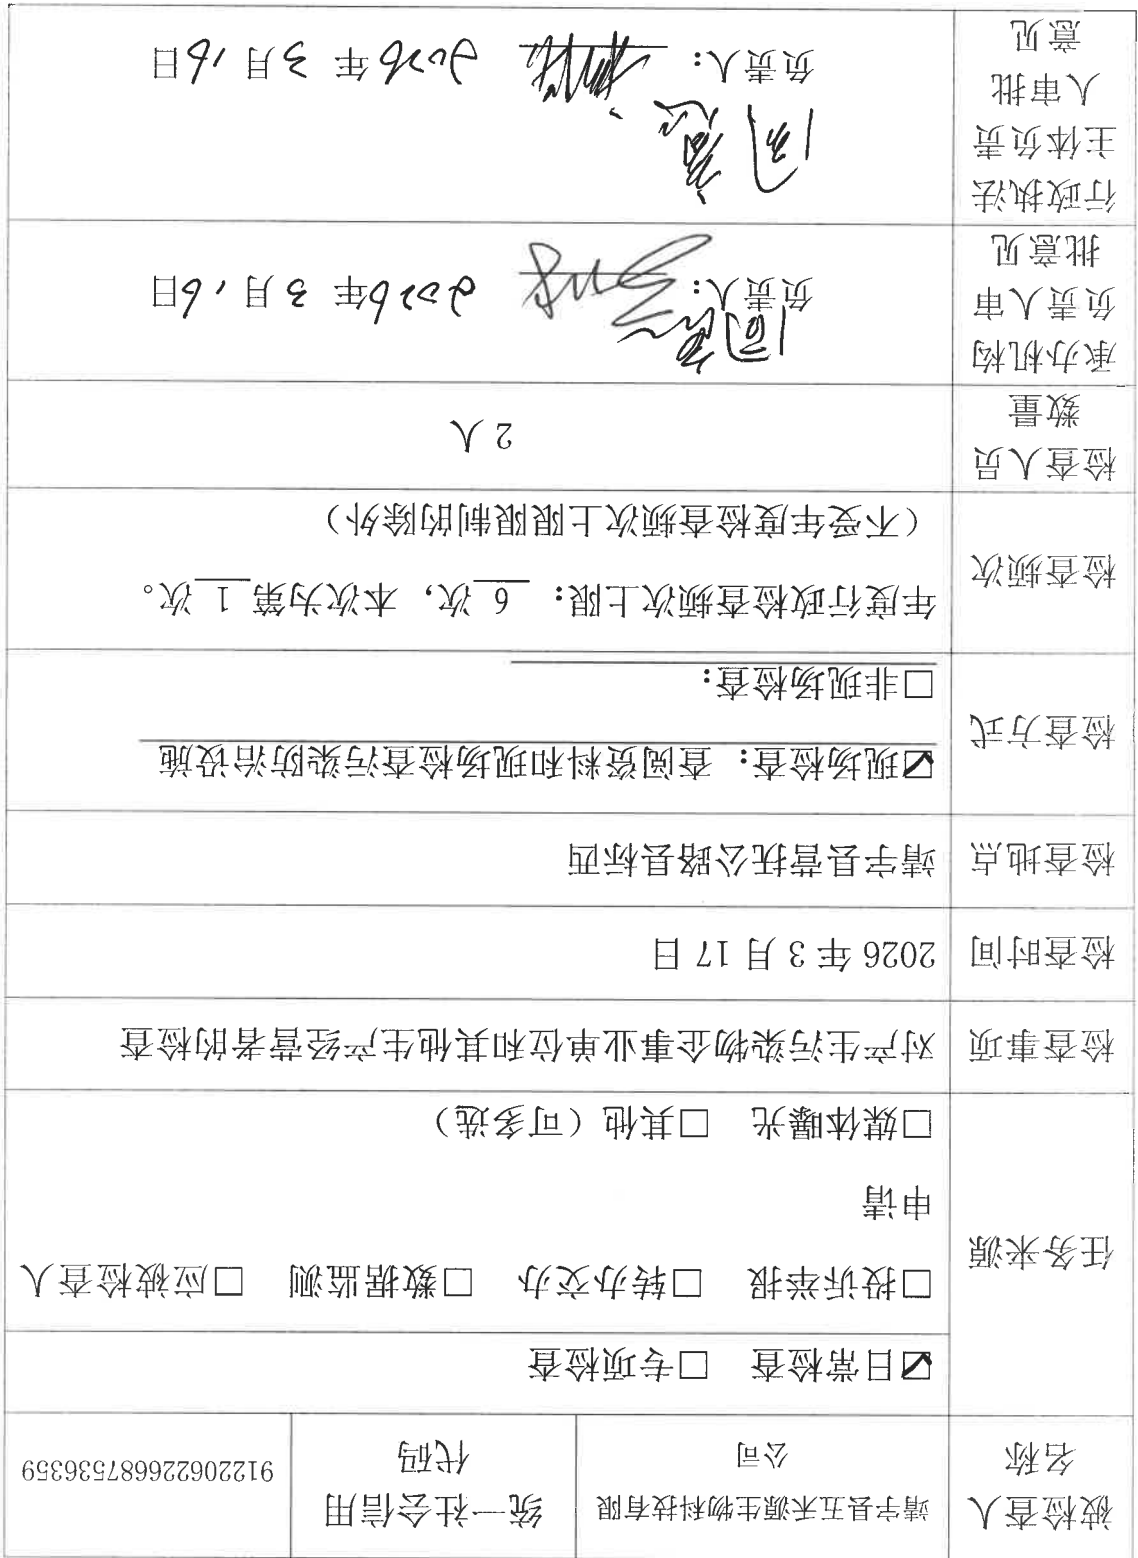 被检查人
名称
靖宇县五禾源生物科技有限
公司
统一社会信用
代码
912206226687536359
任务来源
☑日常检查 □专项检查
□投诉举报 □转办交办 □数据监测 □应被检查人
申请
□媒体曝光 □其他（可多选）
检查事项
对产生污染物企事业单位和其他生产经营者的检查
检查时间
2026 年 3 月 17 日
检查地点
靖宇县营抚公路县标西
检查方式
☑现场检查：查阅资料和现场检查污染防治设施
□非现场检查：
检查频次
年度行政检查频次上限： 6 次，本次为第 1 次。
（不受年度检查频次上限限制的除外）
检查人员
数量
2 人
承办机构
负责人审
批意见
同意
负责人：
2026年 3 月 16日
行政执法
主体负责
人审批
意见
同意
负责人：
2026年 3 月 16日